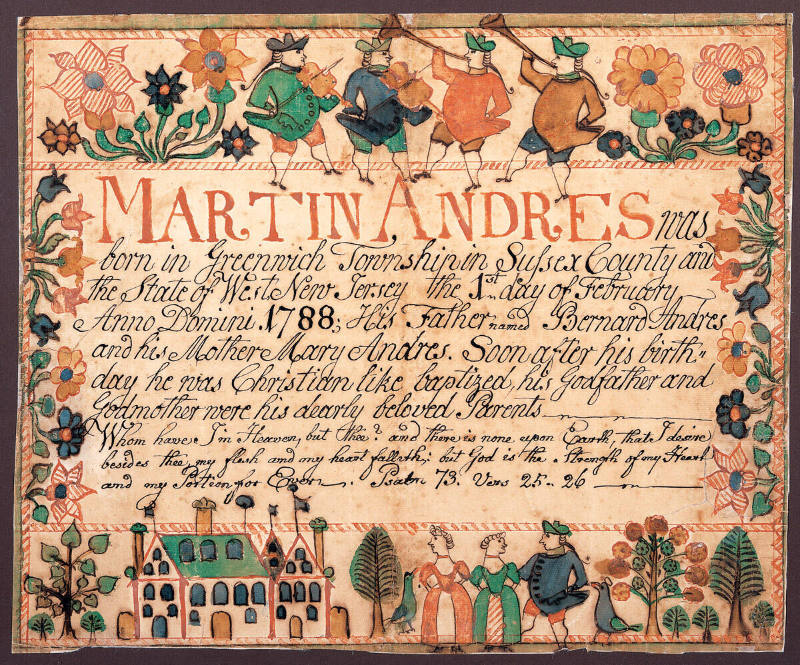 MARTIN ANDRES was
born in Greenwich Township in Sussex County and
the State of West New Jersey the 1st day of February
Anno Domini 1788; His Father named Bernard Andres
and his Mother Mary Andres. Soon after his birth=
day he was Christian like baptized, his Godfather and
Godmother were his dearly beloved Parents
Whom have I in Heaven, but thee? and there is none upon Earth, that I desire
besedes thee, my flesh and my heart falleth; but God is the Strength of my Heart
and my Portion for Ever. Psalm 73. Vers 25. 26